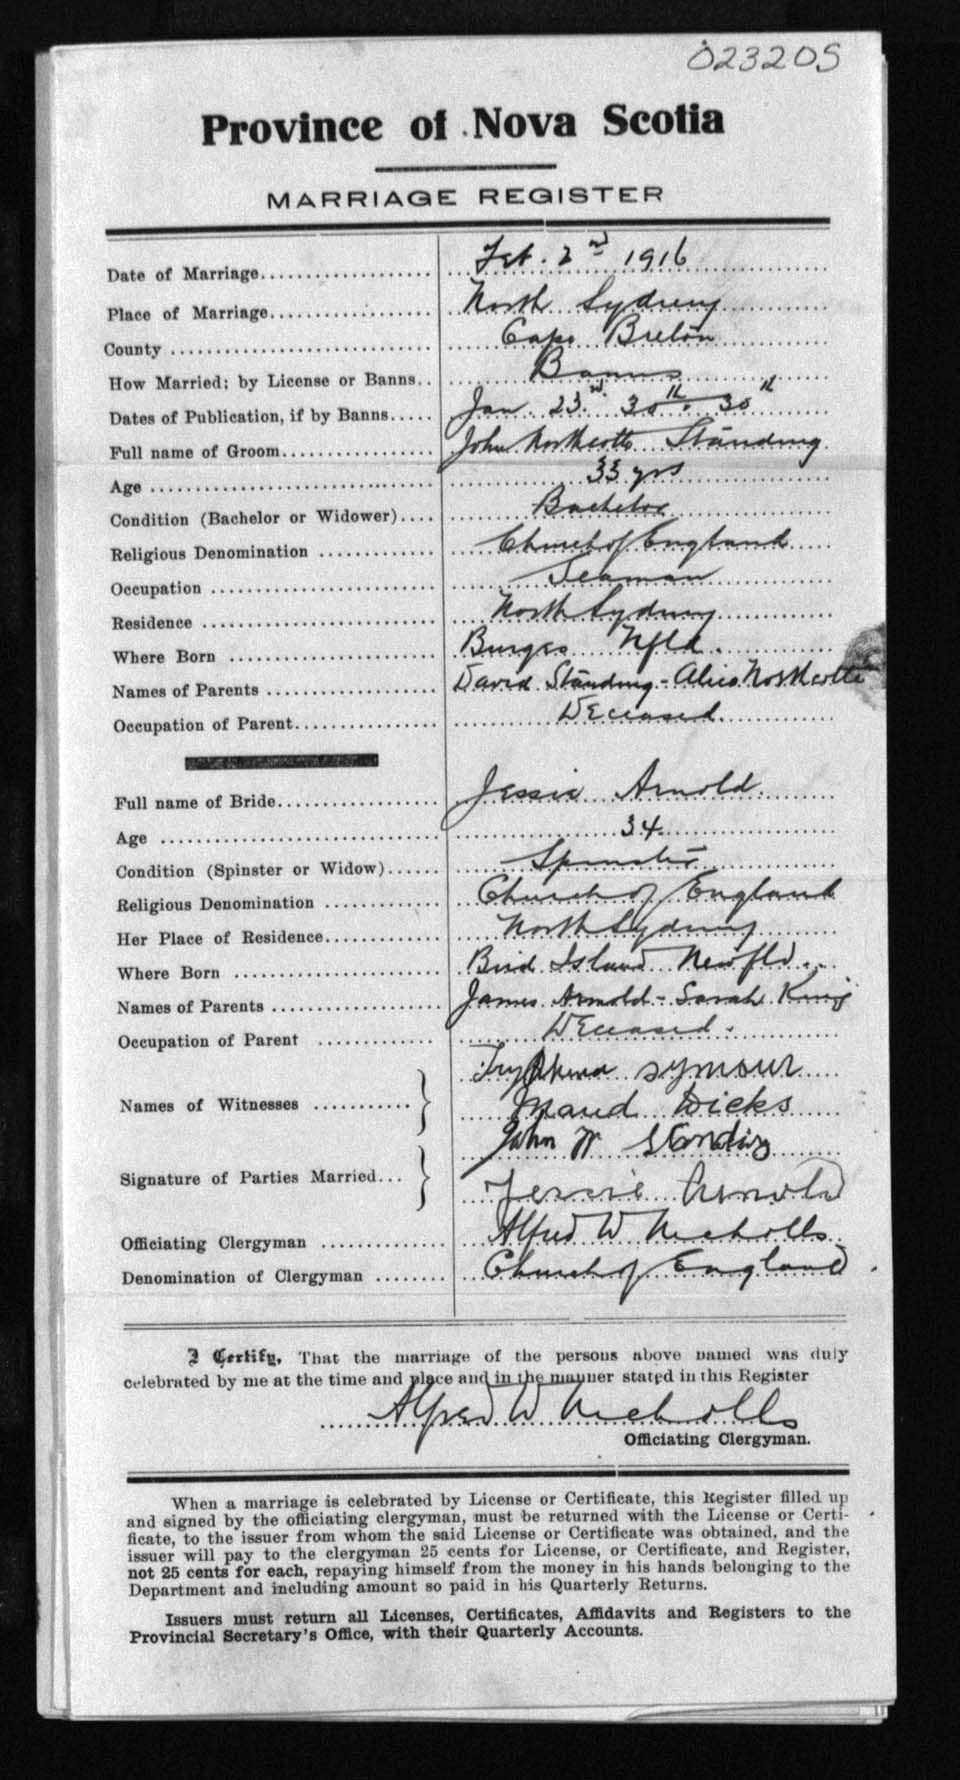 023205
Province of Nova Scotia
MARRIAGE REGISTER
Date of Marriage Feb. 2nd 1916
Place of Marriage North Sydney
County Cape Breton
How Married; by License or Banns Banns
Dates of Publication, if by Banns Jan. 23rd. 30th. 30th
Full name of Groom John Northcotte Standing
Age 33 yrs
Condition (Bachelor or Widower) Bachelor
Religious Denomination Church of England
Occupation Seaman
Residence North Sydney
Where Born Burgeo Nfld.
Names of Parents David Standing - Alice Northcotte
Occupation of Parent Deceased.
Full name of Bride Jessie Arnold
Age 34
Condition (Spinster or Widow) Spinster
Religious Denomination Church of England
Her Place of Residence North Sydney
Where Born Bird Island Newfld.
Names of Parents James Arnold - Sarah King
Occupation of Parent Deceased.
symour
Names of Witnesses Maud Dicks
John Standing
Signature of Parties Married
Jessie Arnold
Officiating Clergyman Alfred W Nicholls
Denomination of Clergyman Church of England
I Certify, That the marriage of the persons above named was duly
celebrated by me at the time and place and in the manner stated in this Register
Alfred W Nicholls
Officiating Clergyman.
When a marriage is celebrated by License or Certificate, this Register filled up
and signed by the officiating clergyman, must be returned with the License or Certi-
ficate, to the issuer from whom the said License or Certificate was obtained, and the
issuer will pay to the clergyman 25 cents for License, or Certificate, and Register,
not 25 cents for each, repaying himself from the money in his hands belonging to the
Department and including amount so paid in his Quarterly Returns.
Issuers must return all Licenses, Certificates, Affidavits and Registers to the
Provincial Secretary's Office, with their Quarterly Accounts.